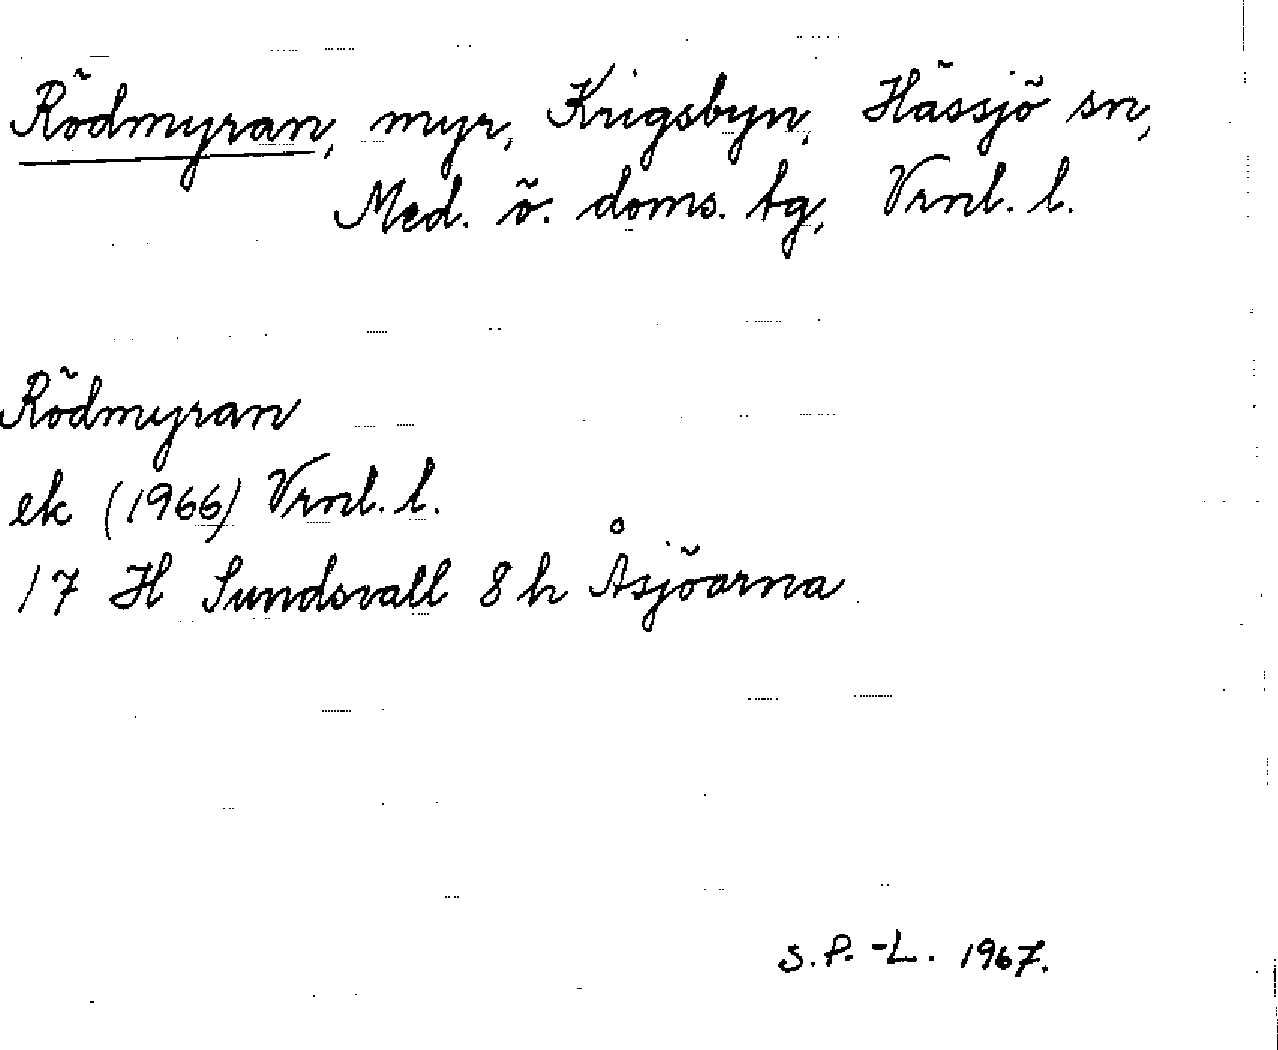 Rödmyran, myr, Krigsbyn, Hässjö sn,
Med. ö. doms. tg, Vrnl. l.
Rödmyran
ek (1966) Vrnl. l.
17 H Sundsvall 8 h Åsjöarna
S. P. -L. 1967.